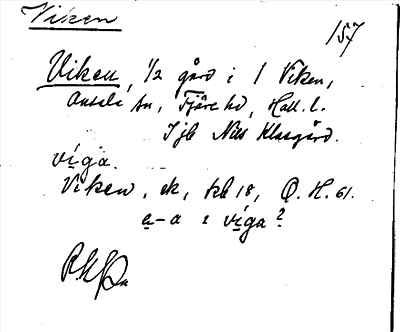 Viken
157
Viken, 1/2 gård i 1 Viken,
Onsala sn, Fjäre hd, Hall. l.
I jb Nils Klasgård.
viga.
Viken, ek, kb 18, O.H. 61.
a-a i viga?